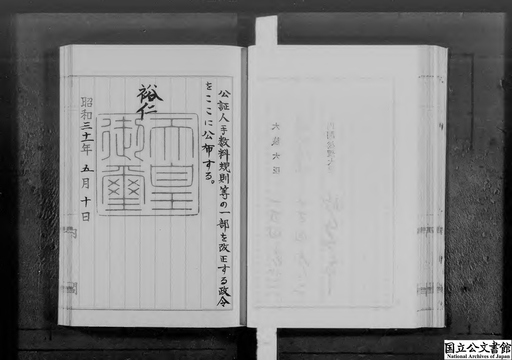 公証人手数料規則等の一部を改正する政令
をここに公布する。
裕仁
天皇
御璽
昭和三十一年五月十日
国立公文書館
National Archives of Japan